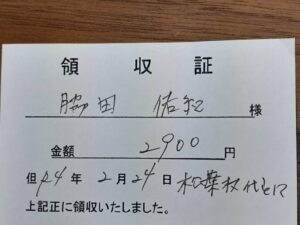 領収証
脇田 様
金額 2900 円
但 R4年 2月24日 代として
上記正に領収いたしました。